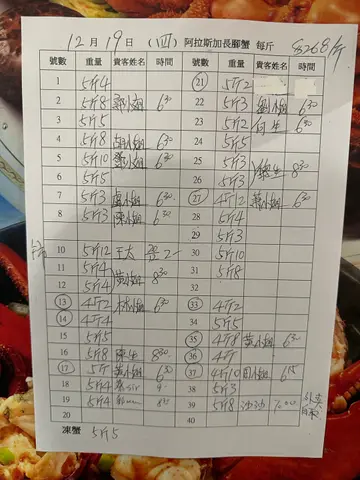 12月19日 (四) 阿拉斯加長腳蟹 每斤 $268/斤
號數 重量 貴客姓名 時間 號數 重量 貴客姓名 時間
1 5斤4 21 5斤2
2 5斤8 小姐 6:30 22 5斤3 劉小姐 6:30
3 5斤5 23 5斤2 何生 6:30
4 5斤8 胡小姐 6:30 24 5斤5
5 5斤10 鄧小姐 6:30 25 5斤3
6 5斤5 26 5斤3 生 8:30
7 5斤3 盧小姐 6:30 27 4斤12 小姐 6:30
8 5斤3 陳小姐 6:30 28 5斤4
29 5斤3
10 5斤12 王太 30 5斤10
11 5斤4 31 5斤8
12 5斤4 黃小姐 8:30 32
13 4斤2 林小姐 6:30 33 4斤2
14 4斤4 34 5斤5
15 5斤5 35 4斤8 黃小姐 6:30
16 5斤8 陳生 8:30 36 4斤
17 5斤 黃小姐 6:30 37 4斤10 周小姐 6:15
18 5斤4 sir 38 5斤3
19 5斤4 39 5斤8 沙沙 7:00
20 40
凍蟹 5斤5